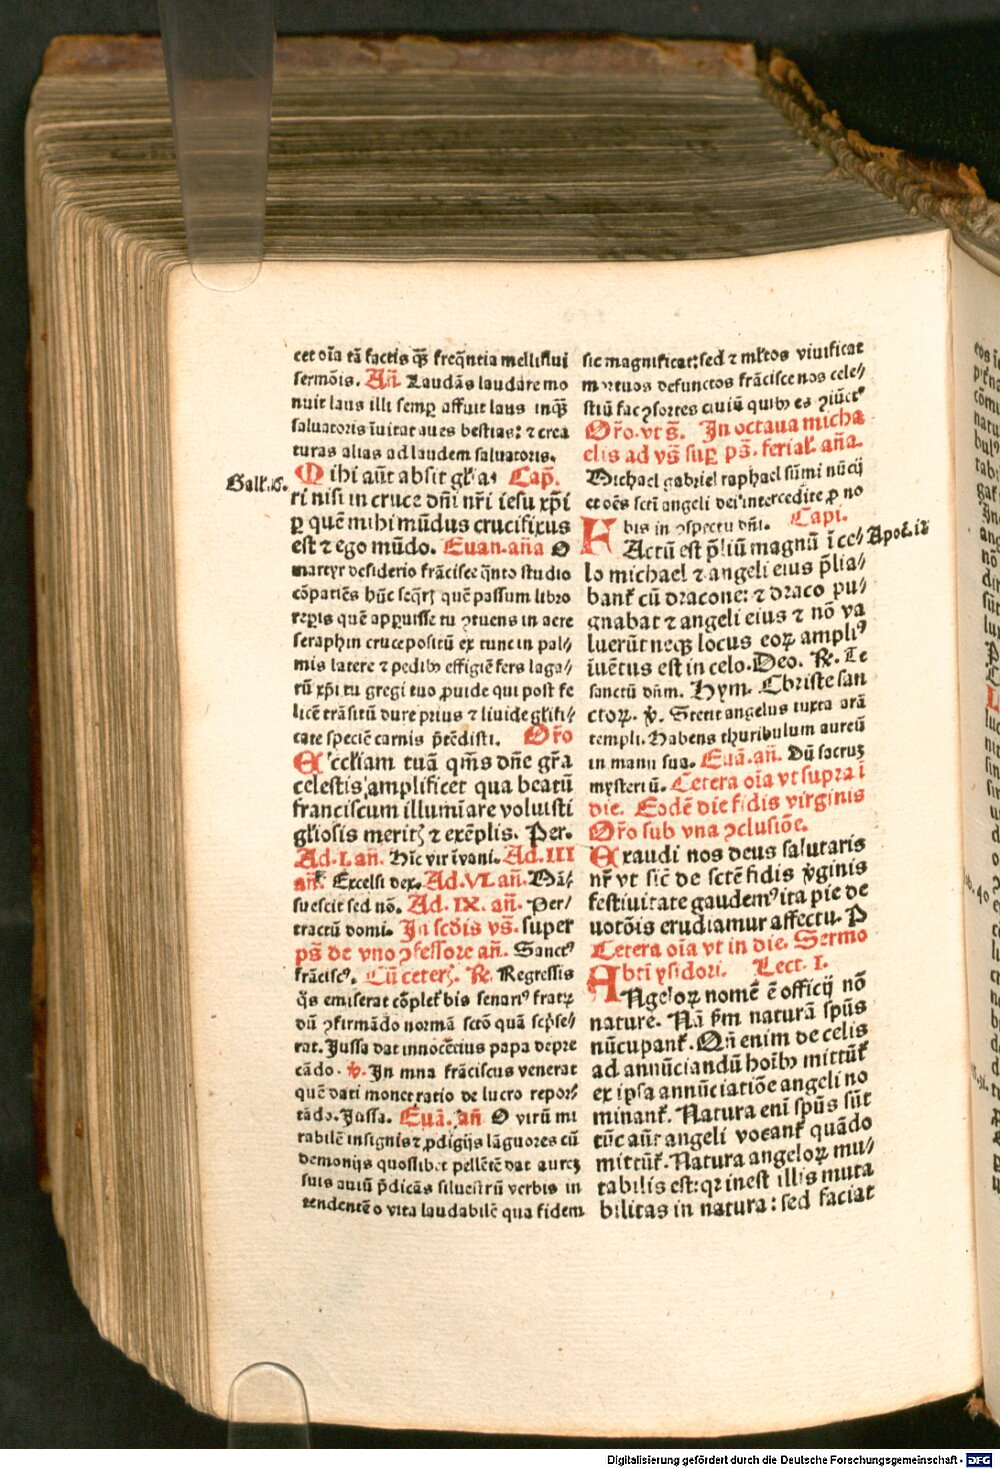 cet oĩa tã factis q̃ꝫ freq̃ntia melliflui
sermõis. Añ. Laudãs laudare mo
nuit laus illi semꝑ affuit laus inq̃ꝫ
saluatoris ĩuitat aues bestias: ⁊ crea
turas alias ad laudem saluatoris.
Gall.
Mihi aũt absit gl'ia Cap̃.
ri nisi in cruce dñi nr̃i iesu xp̃i
ꝑ quẽ mihi mũdus crucifixus
est ⁊ ego mũdo. Euan. aña O
martyr desiderio frãcisce q̃nto studio
cõpatiẽs hũc seq̃rꝭ quẽ passum libro
reꝑis quẽ apꝑuisse tu ꝯtuens in aere
seraphin cruce positũ ex tunc in pal-
mis latere ⁊ pedibꝫ effigiẽ fers laga/
rũ xp̃i tu gregi tuo ꝓuide qui post fe
licẽ trãsitũ dure prius ⁊ liuide gl'ifi/
cate speciẽ carnis p̃tẽdisti. Oro
Ecclĩam tuã qm̃s dñe gr̃a
celestis amplificet qua beatũ
franciscum illumĩare voluisti
gl'iosis meritꝭ ⁊ exẽplis. Per.
Ad. I. añ. Hic vir ĩ vani. Ad. III
añ. Excelsi dex. Ad. VI. añ. Mã/
suescit sed nõ. Ad. IX. añ. Per/
tractũ domi. In scd'is vs̃. super
ps̃ de vno ꝯfessore añ. Sanctꝰ
frãciscꝰ. Cũ ceterꝭ. R̃. Regressis
q̃s emiserat cõplet' bis senariꝰ fratꝝ
dũ ꝯfirmãdo normã sctõ quã scp̃se/
rat. Iussa dat innocẽtius papa depre
cãdo. v̓. In mna frãciscus venerat
quẽ dati monet ratio de lucro repor/
tãdo. Iussa. Euã. añ O virũ mi
rabilẽ insignis ⁊ ꝓdigijs lãguores cũ
demonijs quoslibet pellẽtẽ dat aureꝭ
suis auiũ p̃dicãs siluestrũ verbis in
tendentẽ o vita laudabilẽ qua fidem
sic magnificat: sed ⁊ ml'tos viuificat
mortuos defunctos frãcisce nos cele/
stiũ fac ꝯsortes ciuiũ quibꝫ es ꝯiũct'
Oro. vt s̃. In octaua micha
elis ad vs̃ suꝑ ps̃. ferial'. aña.
Michael gabriel raphael sũmi nũcij
et oẽs scti angeli dei intercedite ꝓ no
bis in ꝯspectu dñi. Capi.
Apoc. iz
FActũ est p̃liũ magnũ ĩ ce/
lo michael ⁊ angeli eius p̃lia/
bant' cũ dracone: ⁊ draco pu/
gnabat ⁊ angeli eius ⁊ nõ va
luerũt neqꝫ locus eoꝝ ampliꝰ
ĩuẽtus est in celo. Deo. R̃. Te
sanctũ dñm. Hym. Christe san
ctoꝝ. v̓. Stetit angelus iuxta arã
templi. Habens thuribulum aureũ
in manu sua. Euã. añ. Dũ sacrum
mysteriũ. Cetera oĩa vt supra ĩ
die. Eodẽ die fidis virginis
Oro sub vna ꝯclusiõe.
Exaudi nos deus salutaris
nr̃ vt sic̃ de sctẽ fidis v̓ginis
festiuitate gaudemꝰ ita pie de
uotõis erudiamur affectu. P
Cetera oĩa vt in die. Sermo
bti ysidori. Lect. I.
ANgeloꝝ nomẽ ẽ officij nõ
nature. Nã ẜm naturã spũs
nũcupant'. Qñ enim de celis
ad annũciandũ hoĩbꝫ mittũt'
ex ipsa annũciatiõe angeli no
minant'. Natura eni spũs sũt
tũc aũt angeli vocant' quãdo
mittũt'. Natura angeloꝝ mu/
tabilis est: qꝛ inest illis muta
bilitas in natura: sed faciat
Digitalisierung gefördert durch die Deutsche Forschungsgemeinschaft - DFG